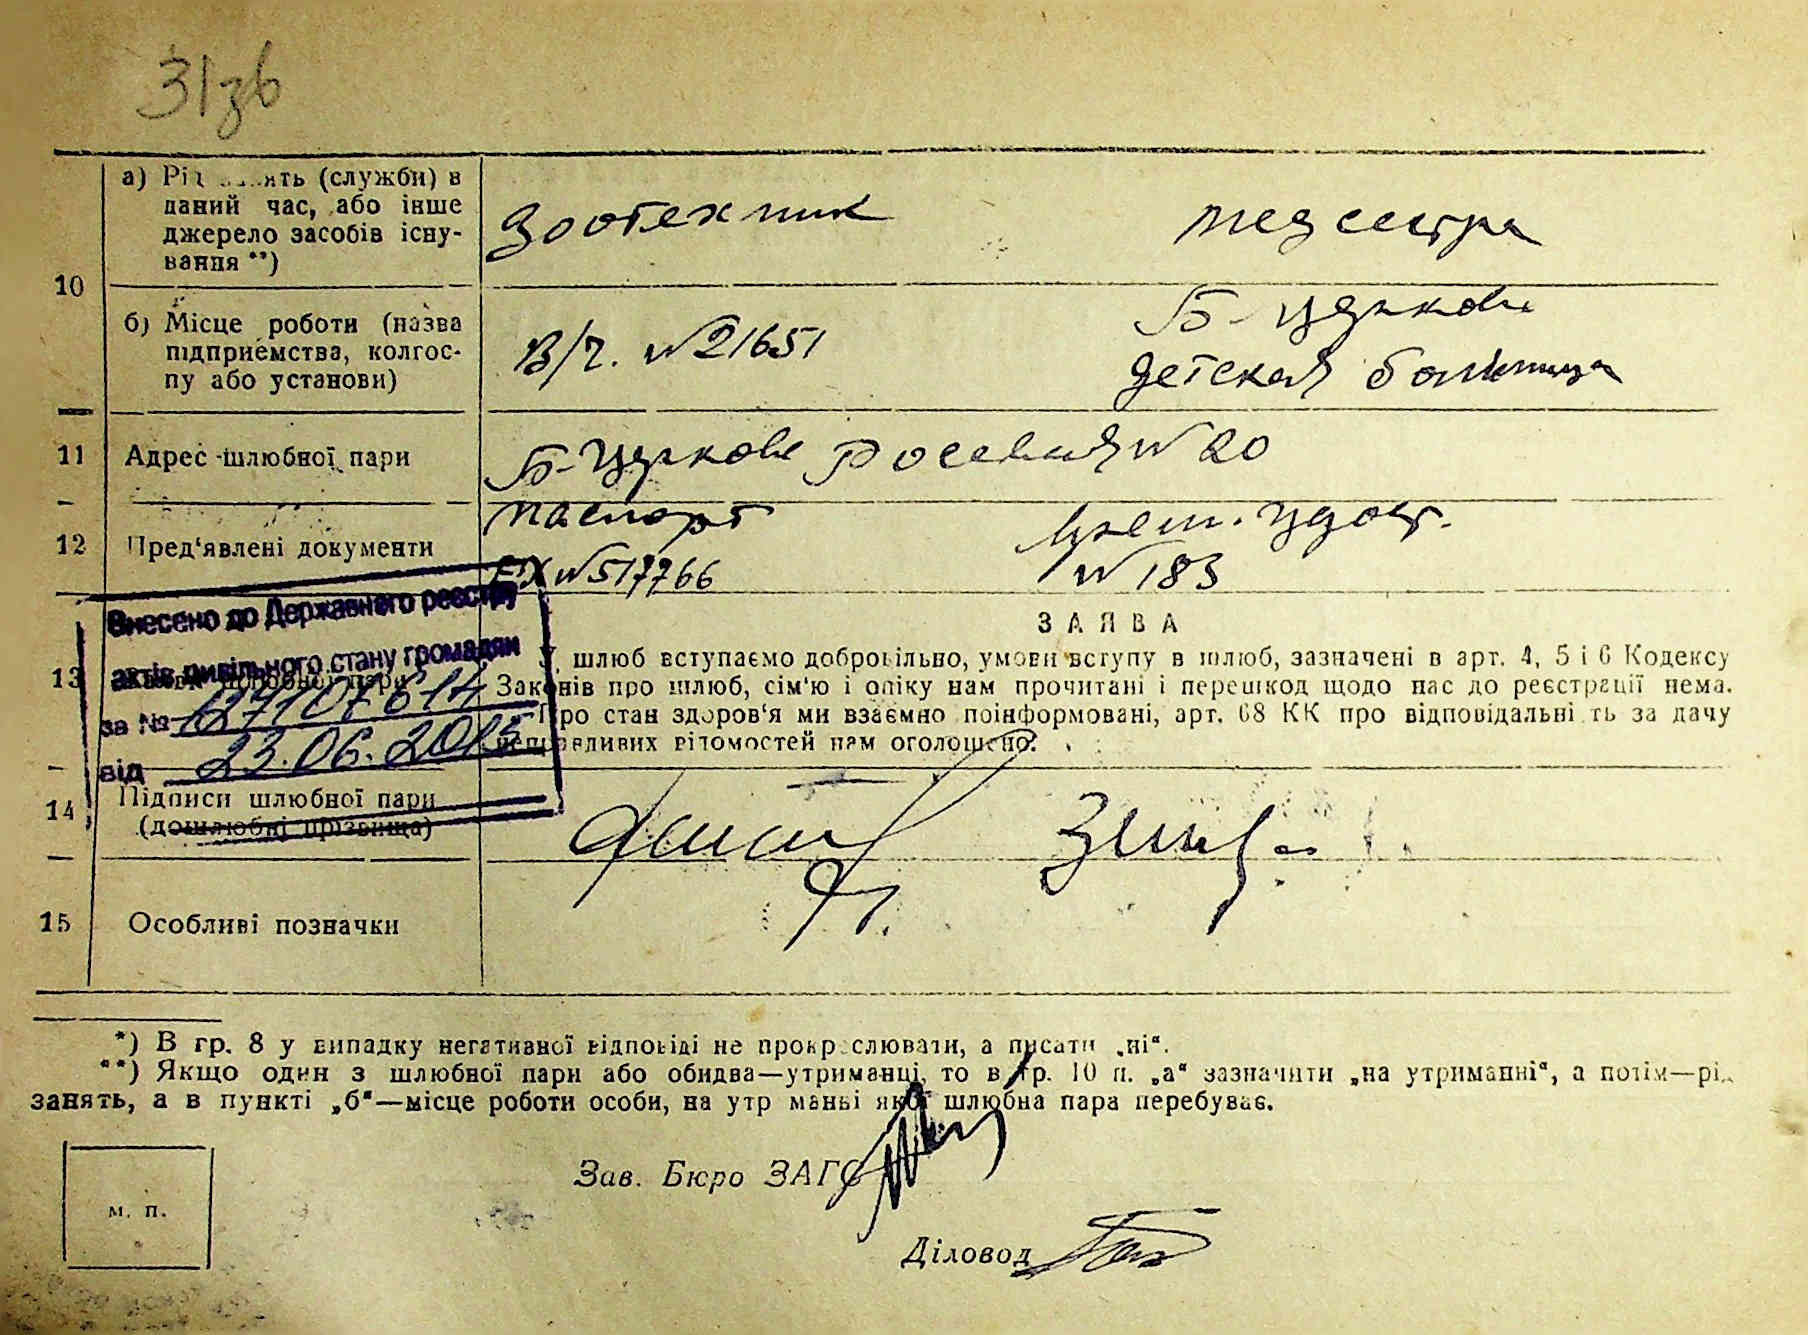 31зв
10
а) Рід занять (служби) в
даний час, або інше
джерело засобів існу-
вання **)
Зоотехник
медсестра
б) Місце роботи (назва
підприємства, колгос-
пу або установи)
В/ч. №21651
Б-Церковь
детская больница
11
Адрес шлюбної пари
Б-Церковь №20
12
Пред'явлені документи
паспорт
№517766
удост.
№183
13
ЗАЯВА
У шлюб вступаємо добровільно, умови вступу в шлюб, зазначені в арт. 4, 5 і 6 Кодексу
Законів про шлюб, сім'ю і опіку нам прочитані і перешкод щодо нас до реєстрації нема.
Про стан здоров'я ми взаємно поінформовані, арт. 68 КК про відповідальність за дачу
неправдивих відомостей нам оголошено.
Внесено до Державного реєстру
актів цивільного стану громадян
за №
від 23.06.2015
14
Підписи шлюбної пари
(дошлюбні прізвища)
15
Особливі позначки
*) В гр. 8 у випадку негативної відповіді не прокреслювати, а писати „ні“.
**) Якщо один з шлюбної пари або обидва—утриманці, то в гр. 10 п. „а“ зазначити „на утриманні“, а потім—рід
занять, а в пункті „б“—місце роботи особи, на утриманні якої шлюбна пара перебуває.
Зав. Бюро ЗАГС
м. п.
Діловод